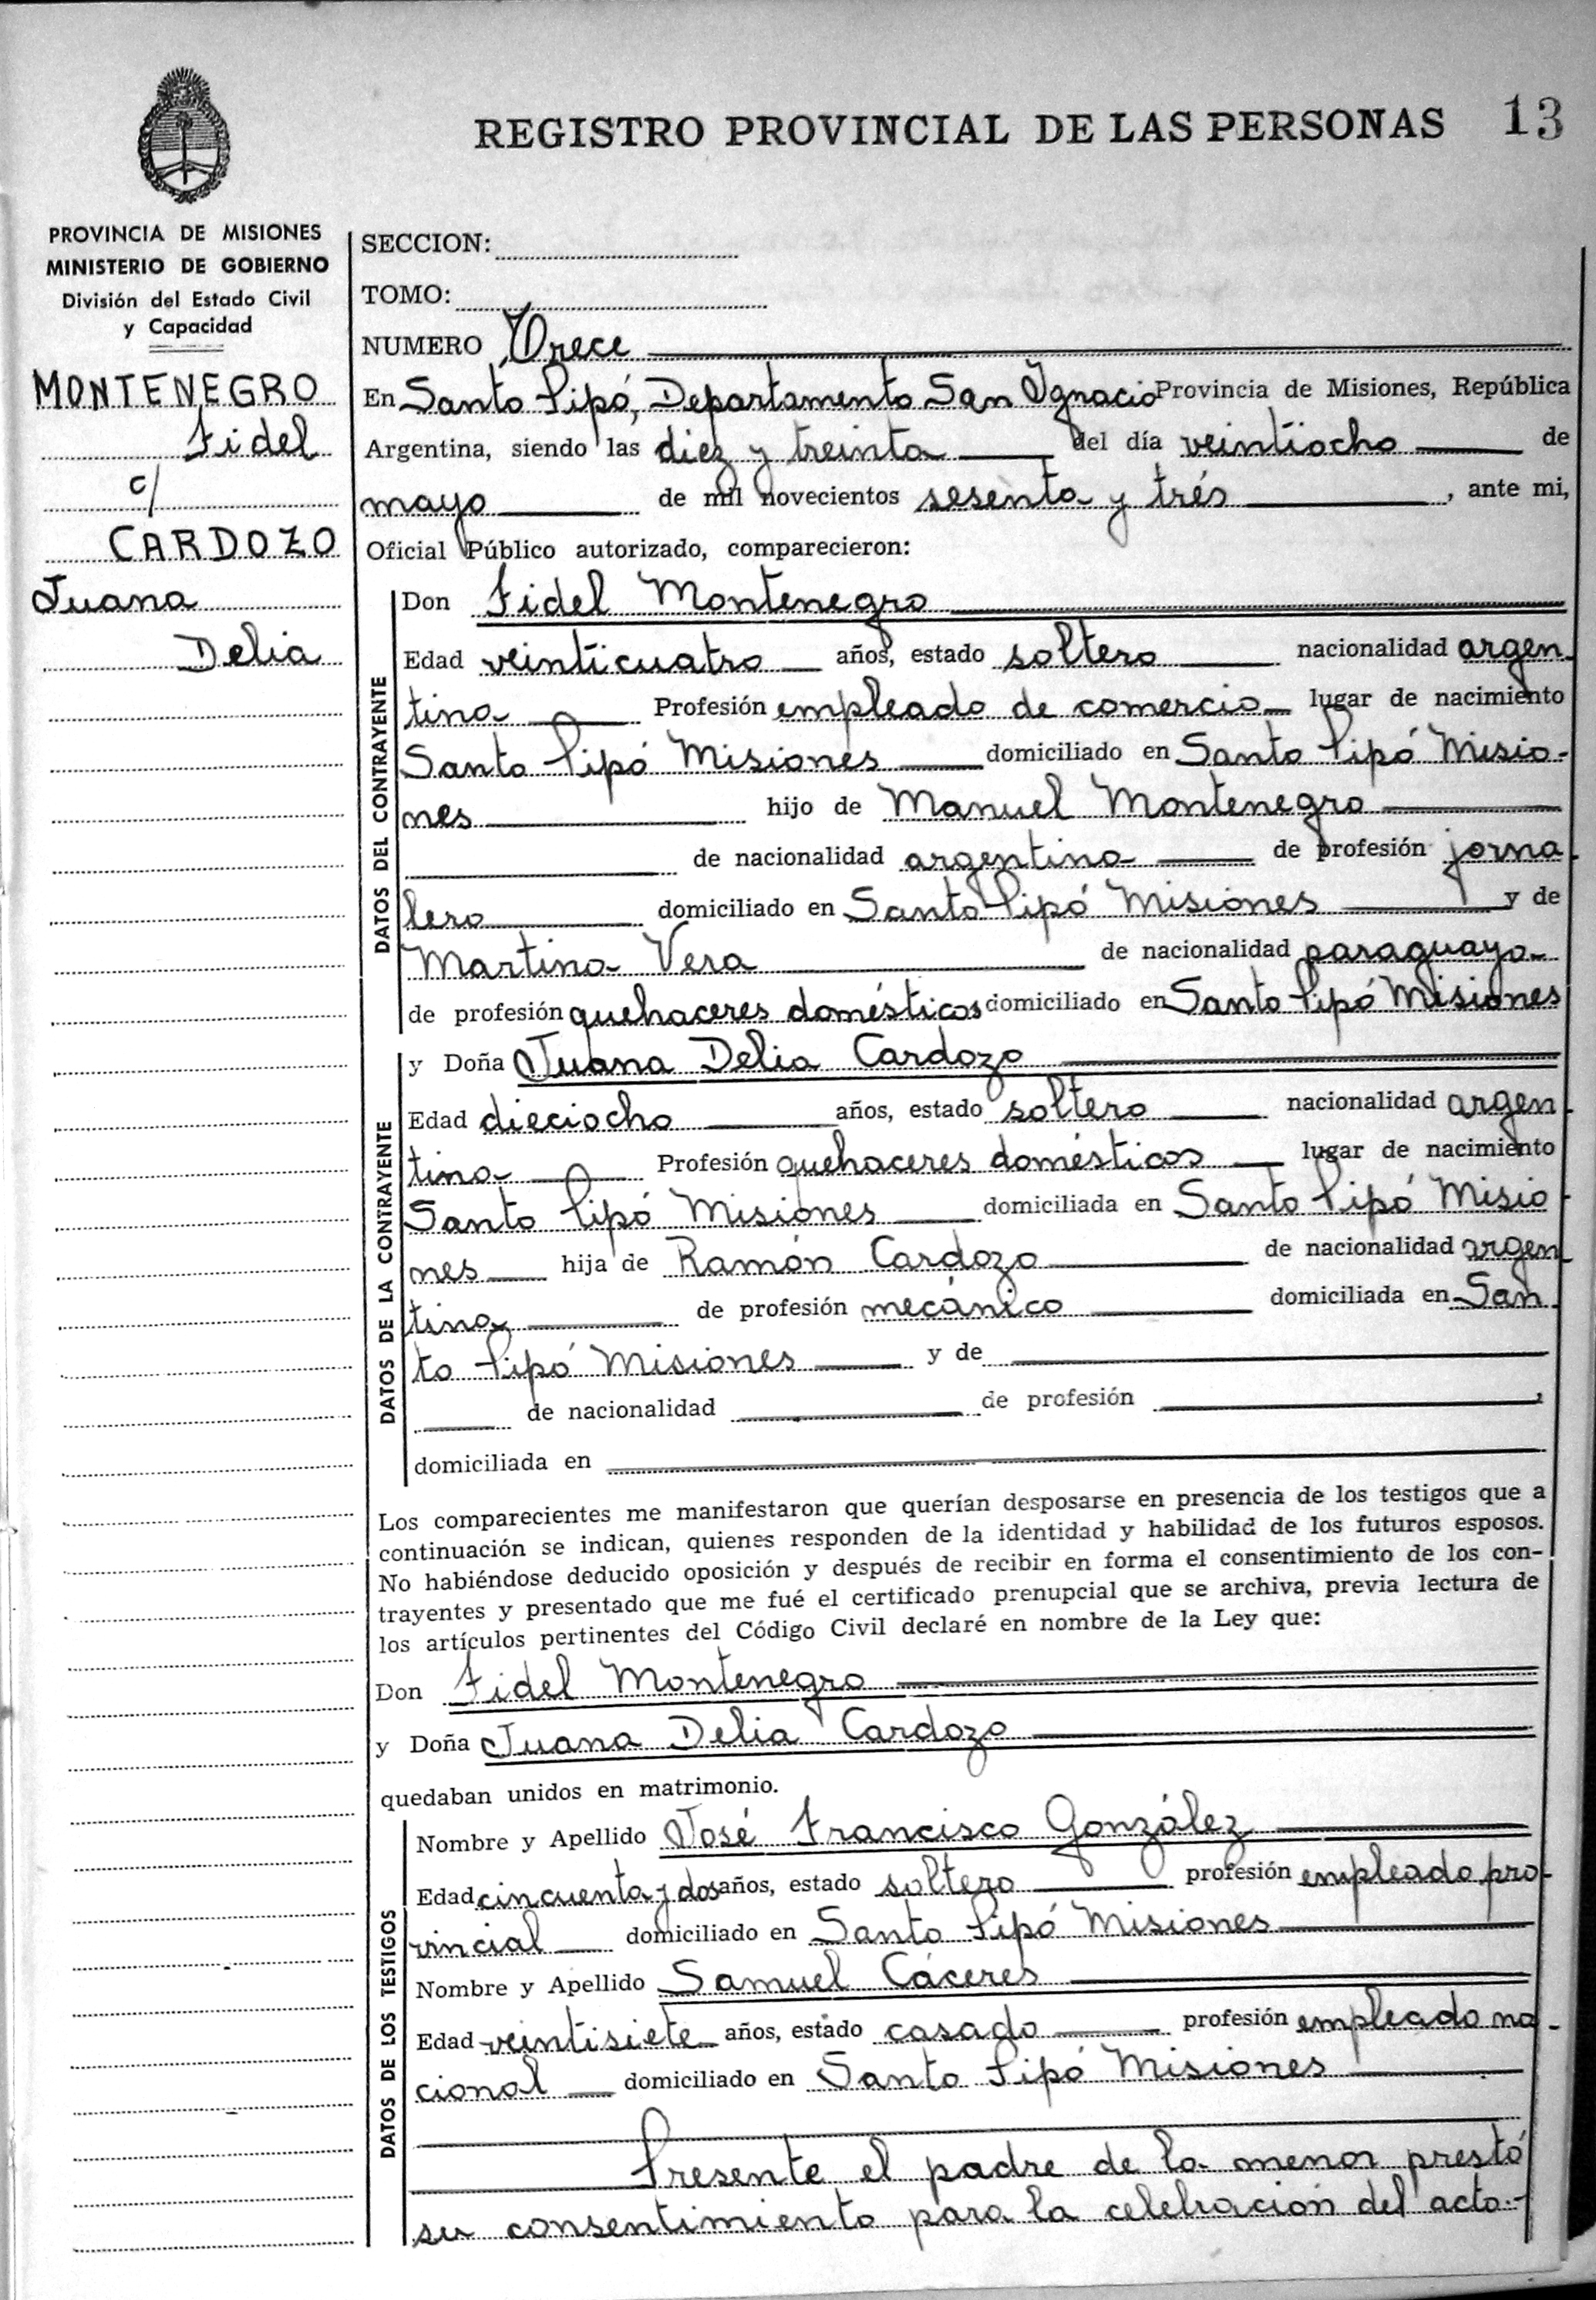 REGISTRO PROVINCIAL DE LAS PERSONAS 13
PROVINCIA DE MISIONES
MINISTERIO DE GOBIERNO
División del Estado Civil
y Capacidad
MONTENEGRO
Fidel
c/
CARDOZO
Juana
Delia
SECCION:
TOMO:
NUMERO Trece
En Santo Pipó, Departamento San Ignacio Provincia de Misiones, República
Argentina, siendo las diez y treinta del día veintiocho de
mayo de mil novecientos sesenta y trés, ante mi,
Oficial Público autorizado, comparecieron:
DATOS DEL CONTRAYENTE
Don Fidel Montenegro
Edad veinticuatro años, estado soltero nacionalidad argen
tina Profesión empleado de comercio lugar de nacimiento
Santo Pipó Misiones domiciliado en Santo Pipó Misio-
nes hijo de Manuel Montenegro
de nacionalidad argentina de profesión jorna
lero domiciliado en Santo Pipó Misiones y de
Martina Vera de nacionalidad paraguaya
de profesión quehaceres domésticos domiciliado en Santo Pipó Misiones
DATOS DE LA CONTRAYENTE
y Doña Juana Delia Cardozo
Edad dieciocho años, estado soltera nacionalidad argen
tina Profesión quehaceres domésticos lugar de nacimiento
Santo Pipó Misiones domiciliada en Santo Pipó Misio
nes hija de Ramón Cardozo de nacionalidad argen
tina de profesión mecánico domiciliada en San
to Pipó Misiones y de
de nacionalidad de profesión ,
domiciliada en
Los comparecientes me manifestaron que querían desposarse en presencia de los testigos que a
continuación se indican, quienes responden de la identidad y habilidad de los futuros esposos.
No habiéndose deducido oposición y después de recibir en forma el consentimiento de los con-
trayentes y presentado que me fué el certificado prenupcial que se archiva, previa lectura de
los artículos pertinentes del Código Civil declaré en nombre de la Ley que:
Don Fidel Montenegro
y Doña Juana Delia Cardozo
quedaban unidos en matrimonio.
DATOS DE LOS TESTIGOS
Nombre y Apellido José Francisco González
Edad cincuenta y dos años, estado soltero profesión empleado pro-
vincial domiciliado en Santo Pipó Misiones
Nombre y Apellido Samuel Cáceres
Edad veintisiete años, estado casado profesión empleado na-
cional domiciliado en Santo Pipó Misiones
Presente el padre de la menor prestó
su consentimiento para la celebración del acto.-